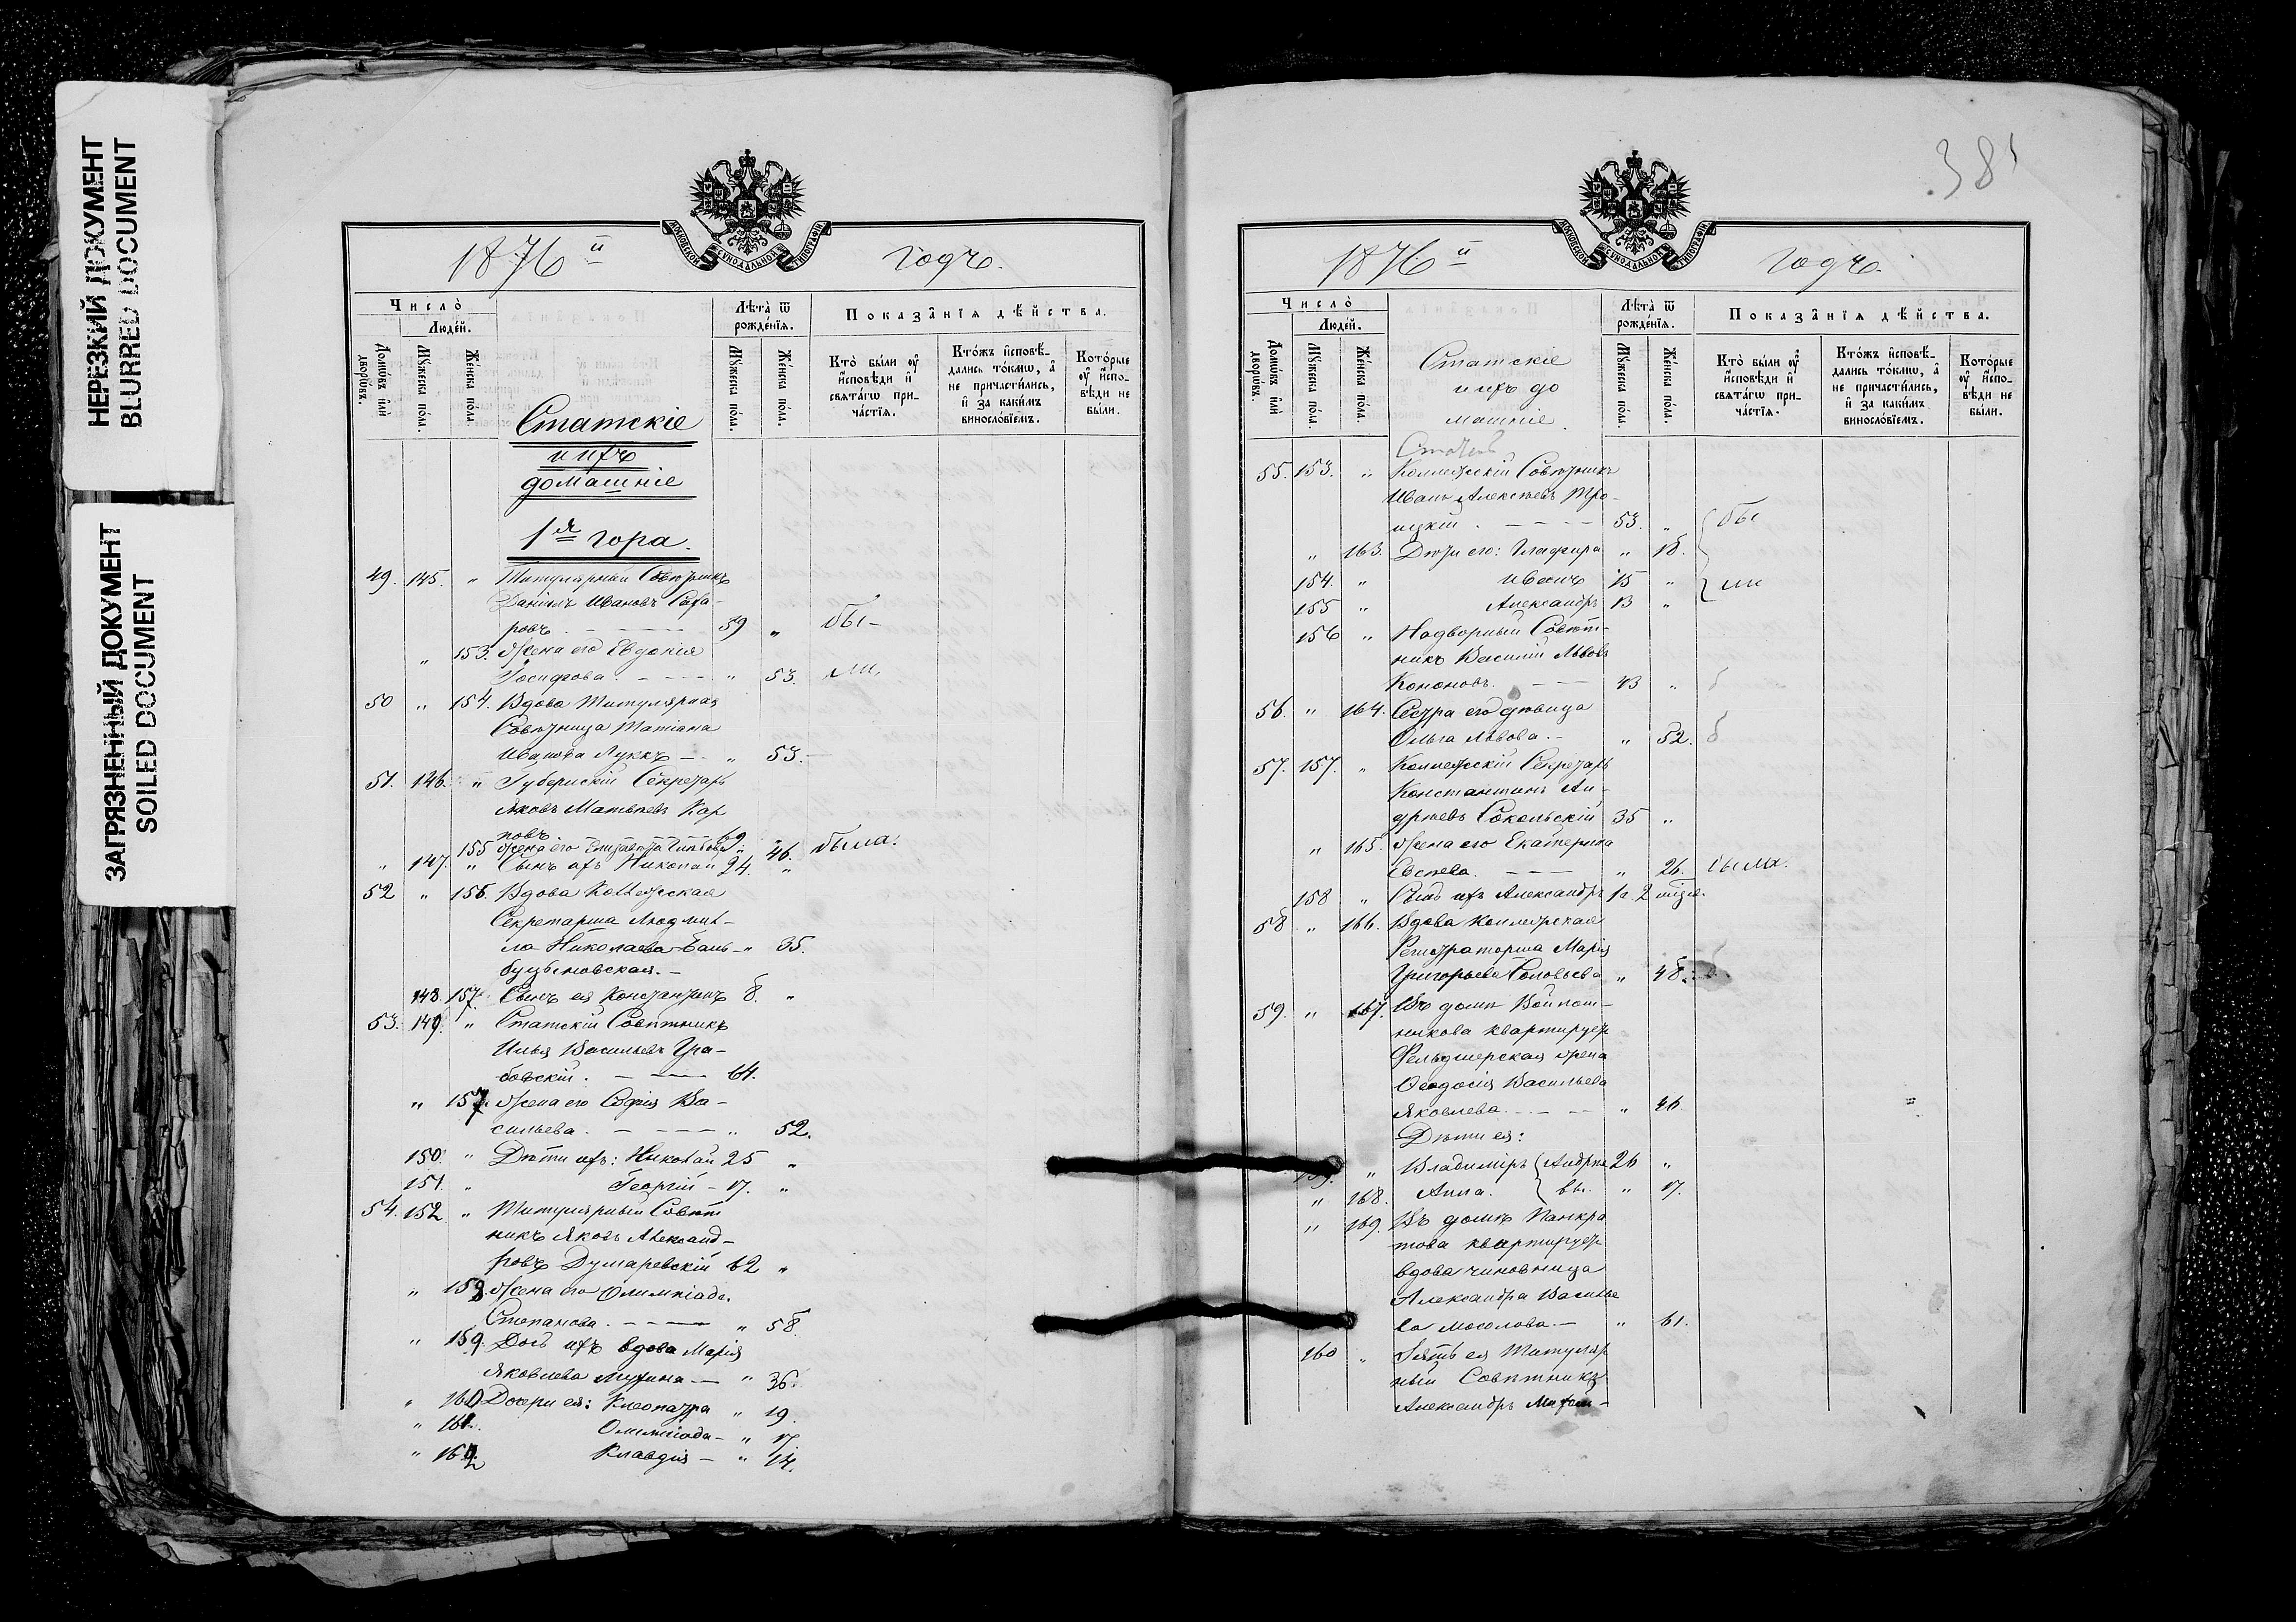 НЕРЕЗКИЙ ДОКУМЕНТ
BLURRED DOCUMENT
ЗАГРЯЗНЕННЫЙ ДОКУМЕНТ
SOILED DOCUMENT
МОСКОВСКОЙ СѴНОДАЛЬНОЙ ТИПОГРАФІИ
1876й годъ.
Число̀
Людéй.
Домѡ́въ и҆лѝ дворѡ́въ.
Мꙋ́жеска по́ла.
Же́нска по́ла.
Лѣта̀ ѿ рожде́нїѧ.
Мꙋ́жеска по́ла.
Же́нска по́ла.
Показа̑нїѧ дѣ́йства.
Кто̀ бы́ли ᲂу҆
и҆сповѣди и҆
свѧта́гѡ при-
ча́стїѧ.
Кто́жъ и҆сповѣ́-
дались то́кмѡ, а҆
не причасти́лись,
и҆ за каки́мъ
винослові́емъ.
Кото́рые
ᲂу҆ и҆спо-
вѣди не
бы́ли.
Статскіе
и ихъ
домашніе
1я гора.
49. 145. " Титулярный Совѣтникъ
Даніилъ Ивановъ Саха-
ровъ - - - 59 " бы-
" 153. Жена его Евдокия
Іосифова. - - - " 53. ли.
50 " 154. Вдова Титулярная
Совѣтница Татіана
Иванова Луккъ - " 53.
51. 146. " Губернскій Секретарь
Яковъ Матвѣевъ Кар
повъ 69 "
155 Жена его Елизавета 46. была.
" 147. " Сынъ ихъ Николай 24. "
52 " 156. Вдова Коллежская
Секретарша Людми-
ла Николаева " 35.
148. 157. Сынъ ея Константинъ 8. "
53. 149. " Статскій Совѣтникъ
Илья Васильевъ Гра-
бовскій. - - 64.
" 157. Жена его Софія Ва-
сильева. - - - " 52.
150. " Дѣти ихъ: Николай 25 "
151. " Георгій - 17. "
54. 152. " Титулярный Совѣт
никъ Яковъ Александ-
ровъ 62 "
" 158 Жена его Олимпіада
Степанова. - - - " 58.
" 159. Дочь ихъ вдова Марія
Яковлева Мухина - " 36.
" 160 Дочери ея: Клеопатра " 19.
" 161. Олимпіада - " 17
" 162 Клавдія - " 14.
381
МОСКОВСКОЙ СѴНОДАЛЬНОЙ ТИПОГРАФІИ
1876й годъ.
Число̀
Людéй.
Домѡ́въ и҆лѝ дворѡ́въ.
Мꙋ́жеска по́ла.
Же́нска по́ла.
Лѣта̀ ѿ рожде́нїѧ.
Мꙋ́жеска по́ла.
Же́нска по́ла.
Показа̑нїѧ дѣ́йства.
Кто̀ бы́ли ᲂу҆
и҆сповѣди и҆
свѧта́гѡ при-
ча́стїѧ.
Кто́жъ и҆сповѣ́-
дались то́кмѡ, а҆
не причасти́лись,
и҆ за каки́мъ
винослові́емъ.
Кото́рые
ᲂу҆ и҆спо-
вѣди не
бы́ли.
Статскіе
и ихъ до
машніе.
55. 153. " Коллежскій Совѣтникъ
Иванъ Алексѣевъ Тро-
ицкій. - - - 53. " бы
" 163. Дѣти его: Глафира " 18.
154. " Иванъ 15 " ли
155 " Александръ 13 "
156 " Надворный Совѣт-
никъ Василій Львовъ
Кононовъ. - - 43 " б
56. " 164. Сестра его дѣвица
Ольга Львова. - " 52. б
57. 157. " Коллежскій Секретарь
Константинъ Ан-
дреевъ Сокольскій 35 "
" 165. Жена его Екатерина
- - " 26. была.
158 " Сынъ ихъ Александръ 1 г. 2
58 " 166. Вдова Коллежская
Регистраторша Марія
Григорьева Соловьева " 48. б
59. " 167. Въ домѣ Войлош-
никова квартируетъ
Фельдшерская жена
Ѳеодосія Васильева
Яковлева. - - - " 46.
Дѣти ея:
159. " Владиміръ } Андрее 26 "
" 168. Анна. } вы. " 17.
" 169. Въ домѣ Панкра
това квартируетъ
вдова чиновница
Александра Василье
ва Мосолова. - " 61.
160 " Зять ея Титуляр
ный Совѣтникъ
Александръ Михай-